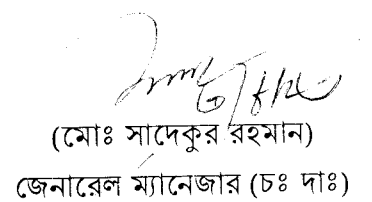 (মোঃ সাদেকুর রহমান)
জেনারেল ম্যানেজার (চঃ দাঃ)